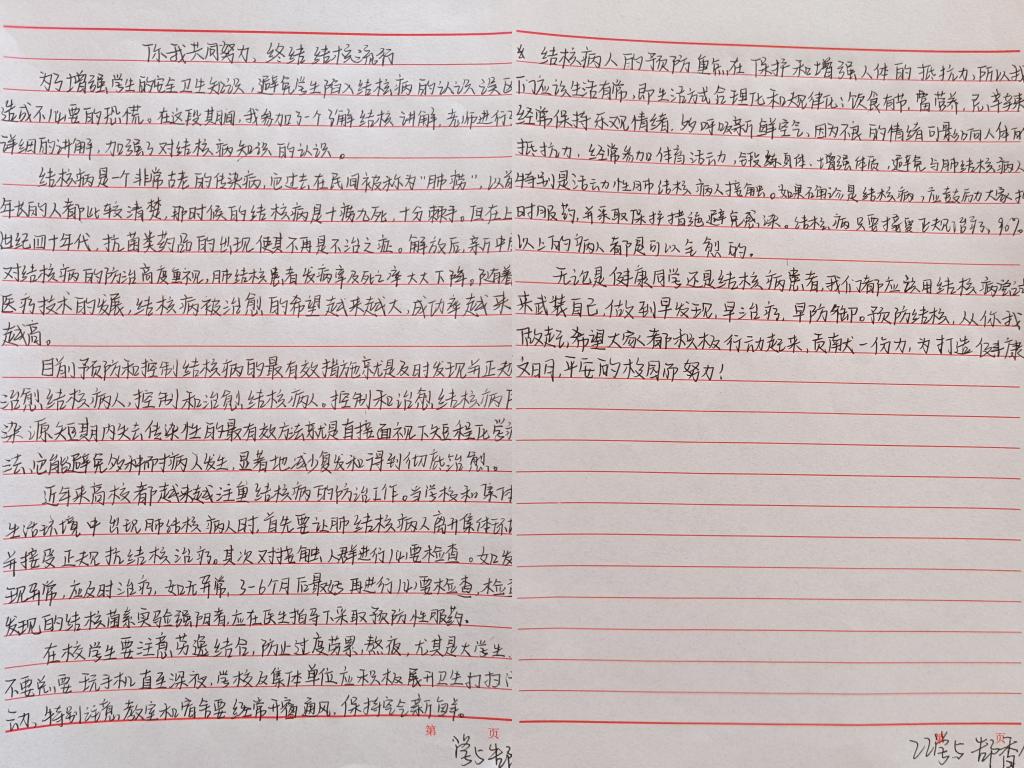 你我共同努力、终结结核流行
为了增强学生的安全卫生知识，避免学生陷入结核病的认识误区
造成不必要的恐慌。在这段期间，我参加了一个了解结核讲解，老师进行了
详细的讲解，加强了对结核病知识的认识。
结核病是一个非常古老的传染病，它过去在民间被称为“肺痨”，以前
年长的人都比较清楚，那时候的结核病是十痨九死，十分棘手。但在上
世纪四十年代，抗菌类药品的出现使其不再是不治之症。解放后，新中
对结核病的防治高度重视，肺结核患者发病率及死亡率大大下降。随着
医疗技术的发展，结核病被治愈的希望越来越大，成功率越来
越高。
目前预防和控制结核病的最有效措施就是及时发现与正
治愈结核病人、控制和治愈结核病人。控制和治愈结核病
染源短期内失去传染性的最有效方法就是直接面视下短程化学
法、它能避免多种耐药病人发生，显著地减少复发和得到彻底治愈。
近年来高校都越来越注重结核病的防治工作。当学校和集体
生活环境中出现肺结核病人时，首先要让肺结核病人离开集体环
并接受正规抗结核治疗。其次对接触人群进行必要检查。如发
现异常，应及时治疗，如无异常，3-6个月后最好再进行必要检查，检查
发现的结核菌素实验强阳者，应在医生指导下采取预防性服药。
在校学生要注意劳逸结合，防止过度劳累、熬夜，尤其是大学生、
不要玩手机直至深夜，学校及集体单位应积极展开卫生打扫
动，特别注意，教室和宿舍要经常开窗通风，保持空气新鲜。
第 页
学5
结核病人的预防重点在保护和增强人体的抵抗力，所以我
们应该生活有常，即生活方式合理化和规律化；饮食有节，富营养，
经常保持乐观情绪，多呼吸新鲜空气，因为不良的情绪可影响人体的
抵抗力，经常参加体育活动，锻炼身体，增强体质，避免与肺结核病人
特别是活动性肺结核病人接触。如果不确诊是结核病，应鼓励大家
时服药，并采取保护措施避免感染。结核病只要接受正规治疗，90%
以上的病人都是可以全愈的。
无论是健康同学还是结核病患者，我们都应该用结核病尝试
来武装自己，做到早发现，早治疗，早防御。预防结核，从你我
做起，希望大家都积极行动起来，贡献一份力，为打造健康
文明、平安的校园而努力！
页
22学5 郜香